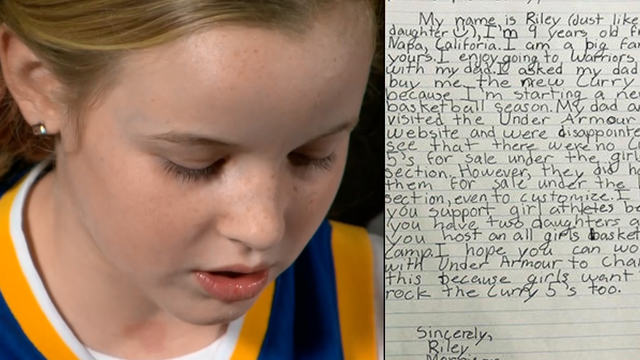 My name is Riley (just like
daughter ), I'm 9 years old f
Napa, Califoria. I am a big fa
yours. I enjoy going to Warriors
with my dad. I asked my dad
buy me the new Curry
because I'm starting a ne
basketball season. My dad a
visited the Under Armour
website and were disappointe
see that there were no Cu
5's for sale under the girl
section. However, they did h
them for sale under the
section, even to customize. I
you support girl athletes be
you have two daughters a
you host an all girls basket
camp. I hope you can wo
with Under Armour to chan
this because girls want
rock the Curry 5's too.
Sincerely,
Riley